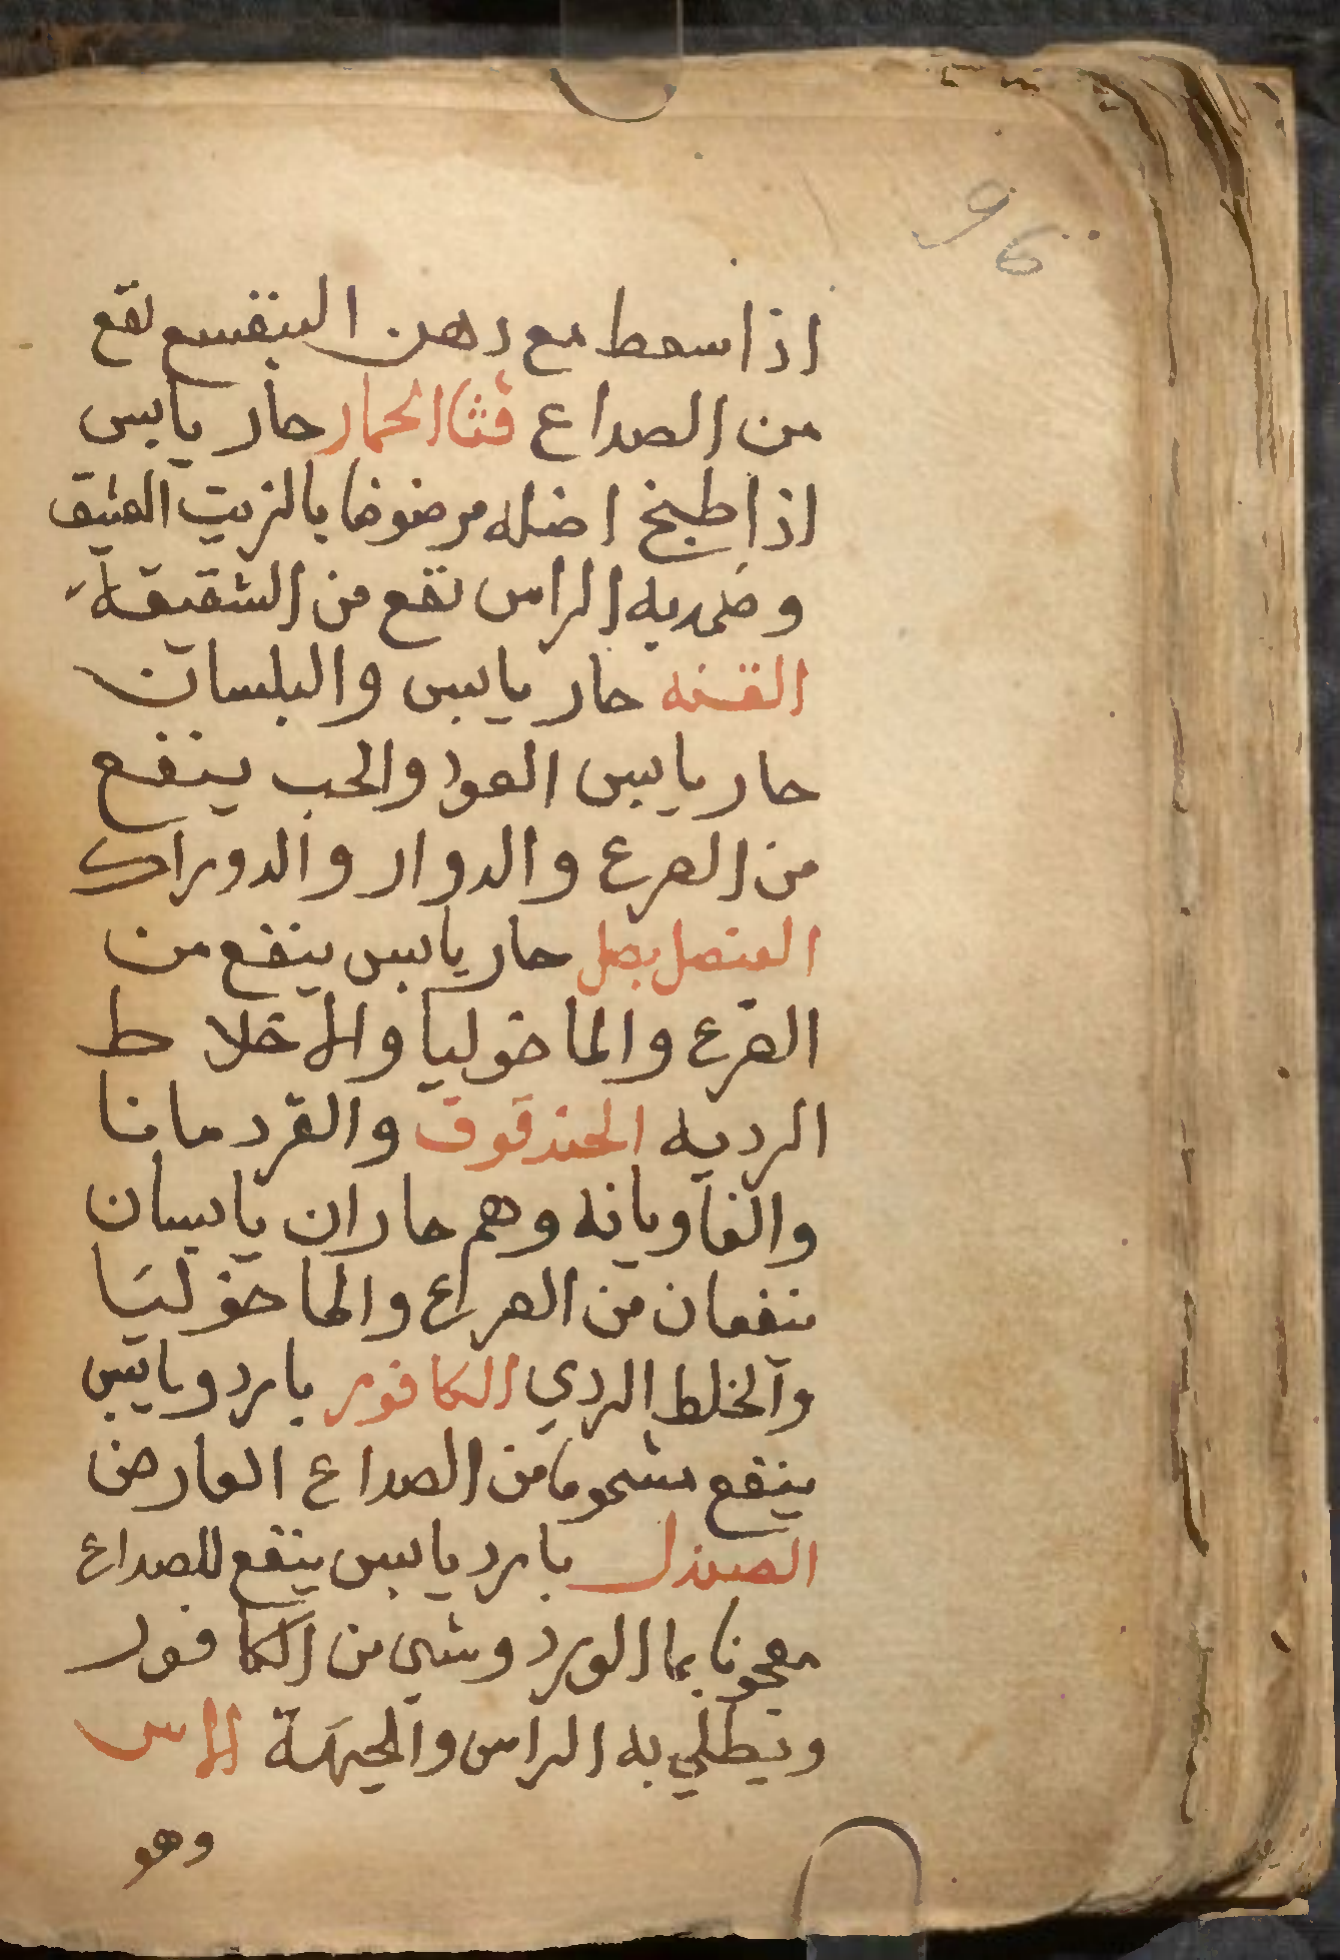 اذا سعط مع دهن البنفسج نفع
من الصداع قثا الحمار حار يابس
اذا طبخ اصله مرضوضا بالزيت العتيق
وضمد به الراس نفع من الشقيقة
القنه حار يابس والبلسان
حار يابس العود والحب ينفع
من الصرع والدوار والدوراك
العنصل بصل حار يابس ينفع من
الصرع والماخوليا والاخلاط
الرديه الحندقوق والقردمانا
والفاويانه وهم حاران يابسان
ينفعان من الصراع والماخوليا
والخلط الردي الكافور بارد ويابس
ينفع مشموما من الصداع العارض
الصندل بارد يابس ينفع للصداع
معجونا بما الورد وشي من الكافور
ويطلي به الراس والجبهة الاس
وهو